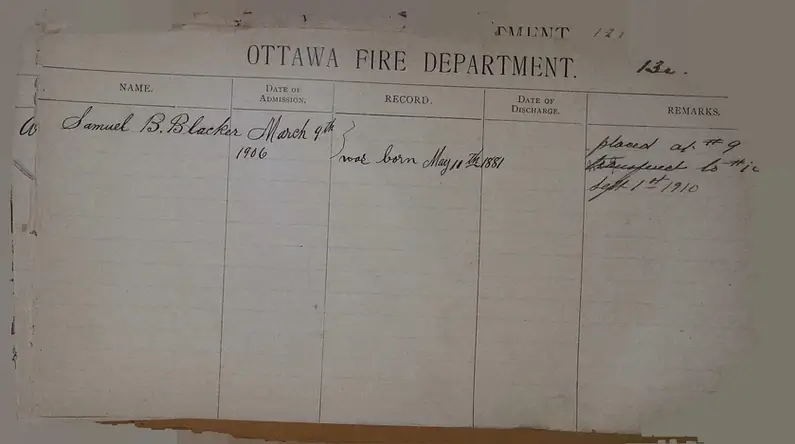 121
OTTAWA FIRE DEPARTMENT.
NAME.
DATE OF ADMISSION.
RECORD.
DATE OF DISCHARGE.
REMARKS.
Samuel B. Blacker
March 9th
1906
was born May 10th 1881
placed at #9
transfered to
Sept 1st 1910